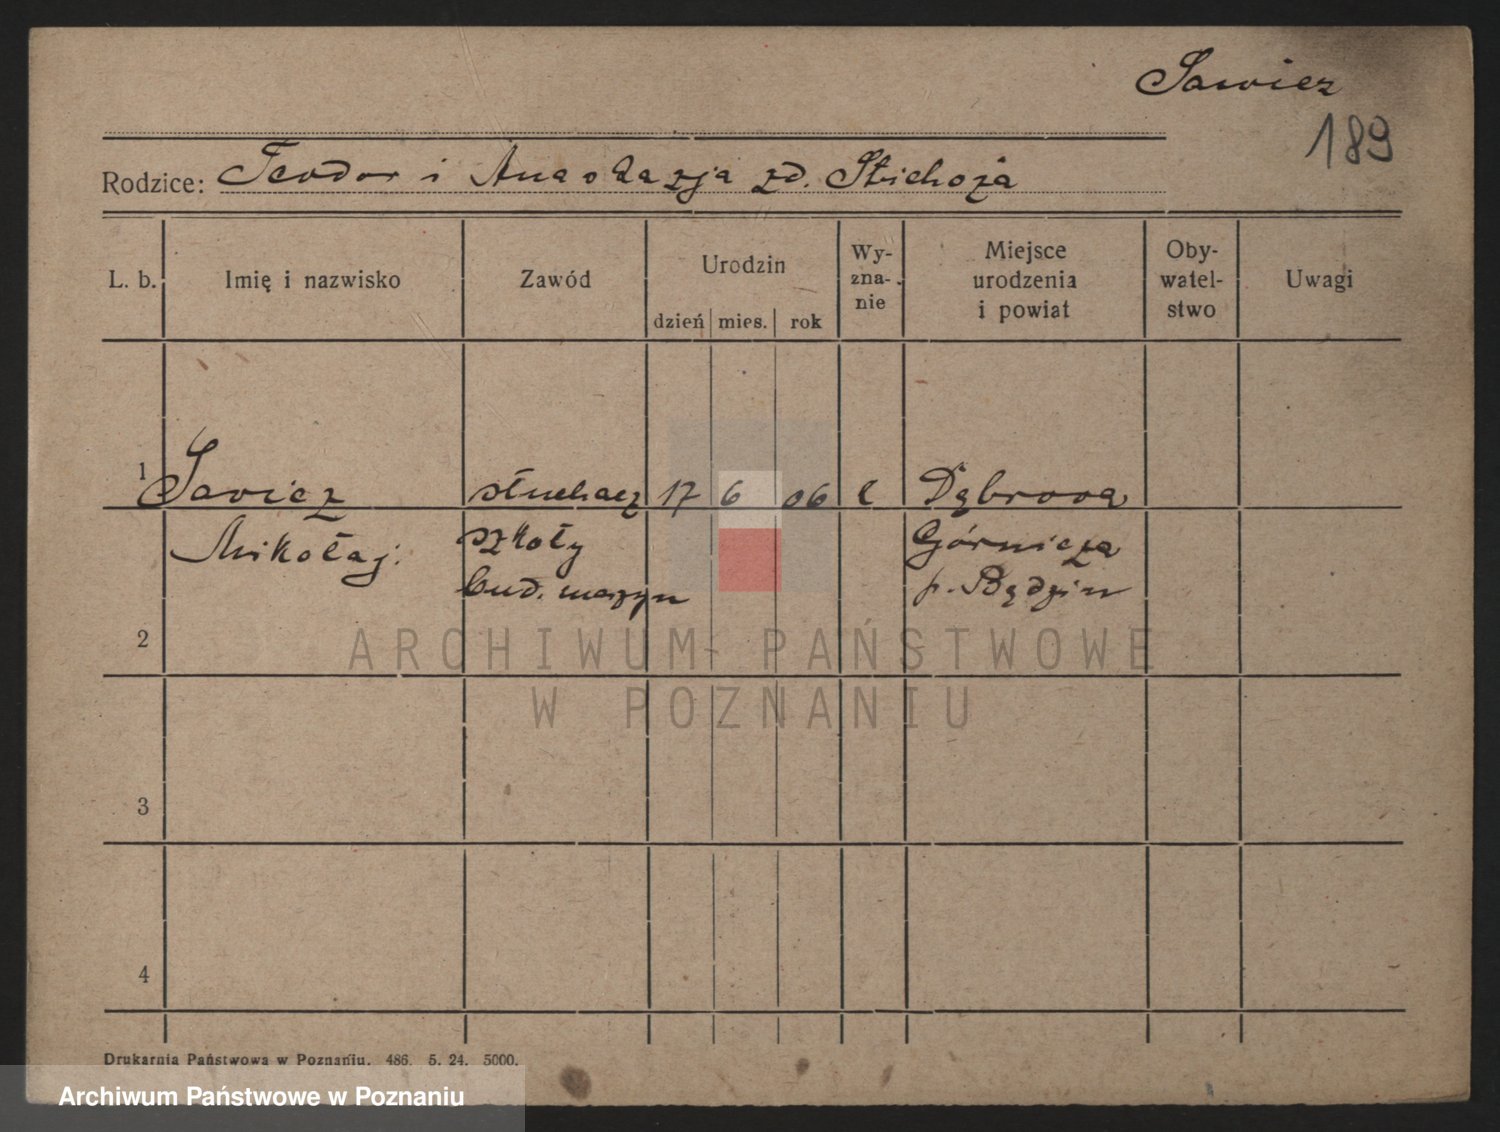 Sawicz
189
Rodzice: Teodor i Anastazja zd.
L. b. Imię i nazwisko Zawód Urodzin dzień mies. rok Wy-zna-nie Miejsce urodzenia i powiat Oby-watel-stwo Uwagi
1 Sawicz słuchacz 17 6 06 Dąbrowa
Mikołaj. szkoły Górnicza
bud. maszyn p. Będzin
2
ARCHIWUM PAŃSTWOWE
W POZNANIU
3
4
Drukarnia Państwowa w Poznaniu. 486. 5. 24. 5000.
Archiwum Państwowe w Poznaniu